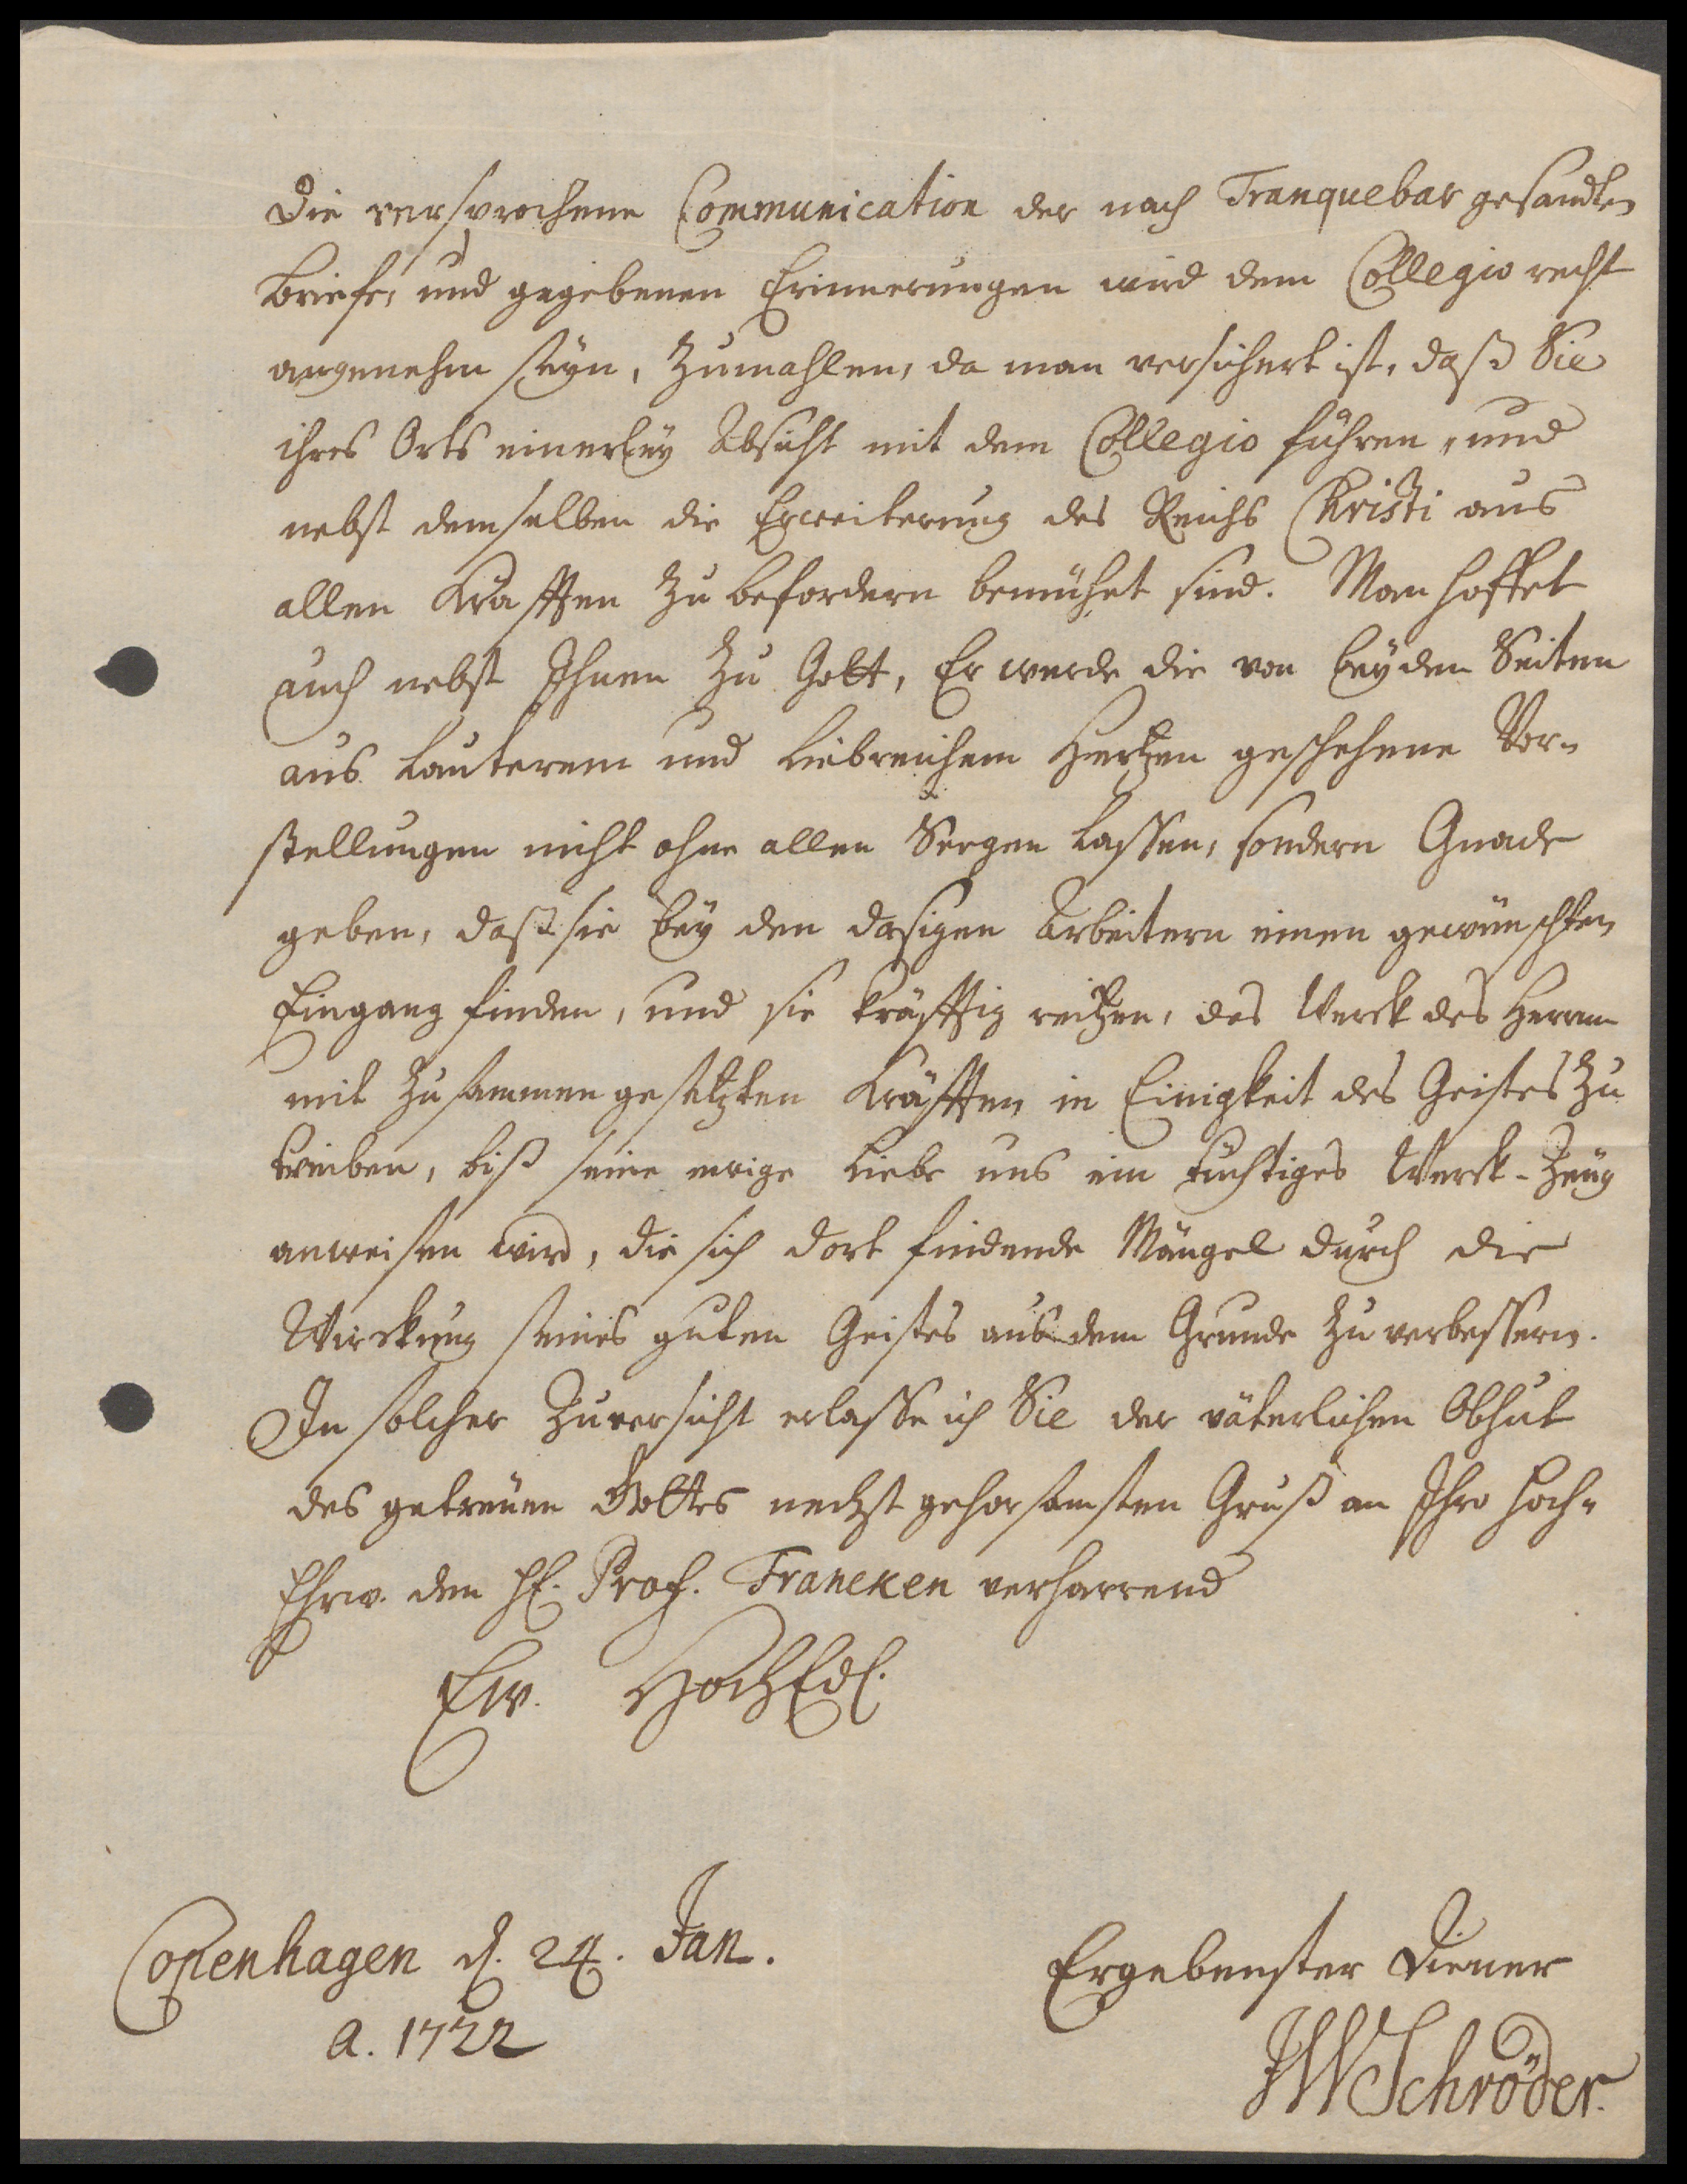 Die versprochene Communication der nach Tranquebar gesandten
Briefe, und gegebenen Erinnerungen wird dem Collegio recht
angenehm seyn, zumahlen, da man versichert ist, daß Sie
ihres Orts einerley Absicht mit dem Collegio führen, und
nebst demselben die Erweiterung des Reichs Christi aus
allen Kräfften zu befordern bemühet sind. Man hoffet
auch nebst Ihnen zu Gott, Er werde die von beyden Seiten
aus lauterem und liebreichem Hertzen geschehene Vor-
stellungen nicht ohne allen Seegen lassen, sondern Gnade
geben, daß sie bey den dasigen Arbeitern einen gewünschten
Eingang finden, und sie kräfftig reitzen, das Werck des Herrn
mit zusammen gesetzten Kräfften in Einigkeit des Geistes zu
treiben, biß seine ewige Liebe uns ein tüchtiges Werck-Zeug
anweisen wird, die sich dort findende Mängel durch die
Wirckung seines guten Geistes aus dem Grunde zu verbessern.
In solcher Zuversicht erlasse ich Sie der väterlichen Obhut
des getreuen Gottes nechst gehorsamsten Gruß an Ihro Hoch-
Ehrw. den H. Prof. Francken verharrend
Ew. HochEdl.
Copenhagen d. 24. Jan.
a. 1722
Ergebenster Diener
JWSchröder.